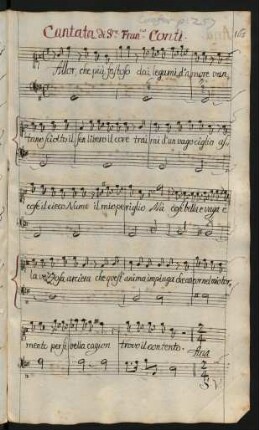 Cantata Del Sr. Fran.co Conti.
Allor, che più festoso dai legami d'amore van,
sciolto il sen libero il core trai rai d'un vago ciglio as,
cose il cieco Nume il mio periglio. Mà così bella e vaga è
la vezzosa arciera che quest'anima impiaga ch'ancor nei mio tor,
mento per sì bella cagion trovo il contento.
Aria